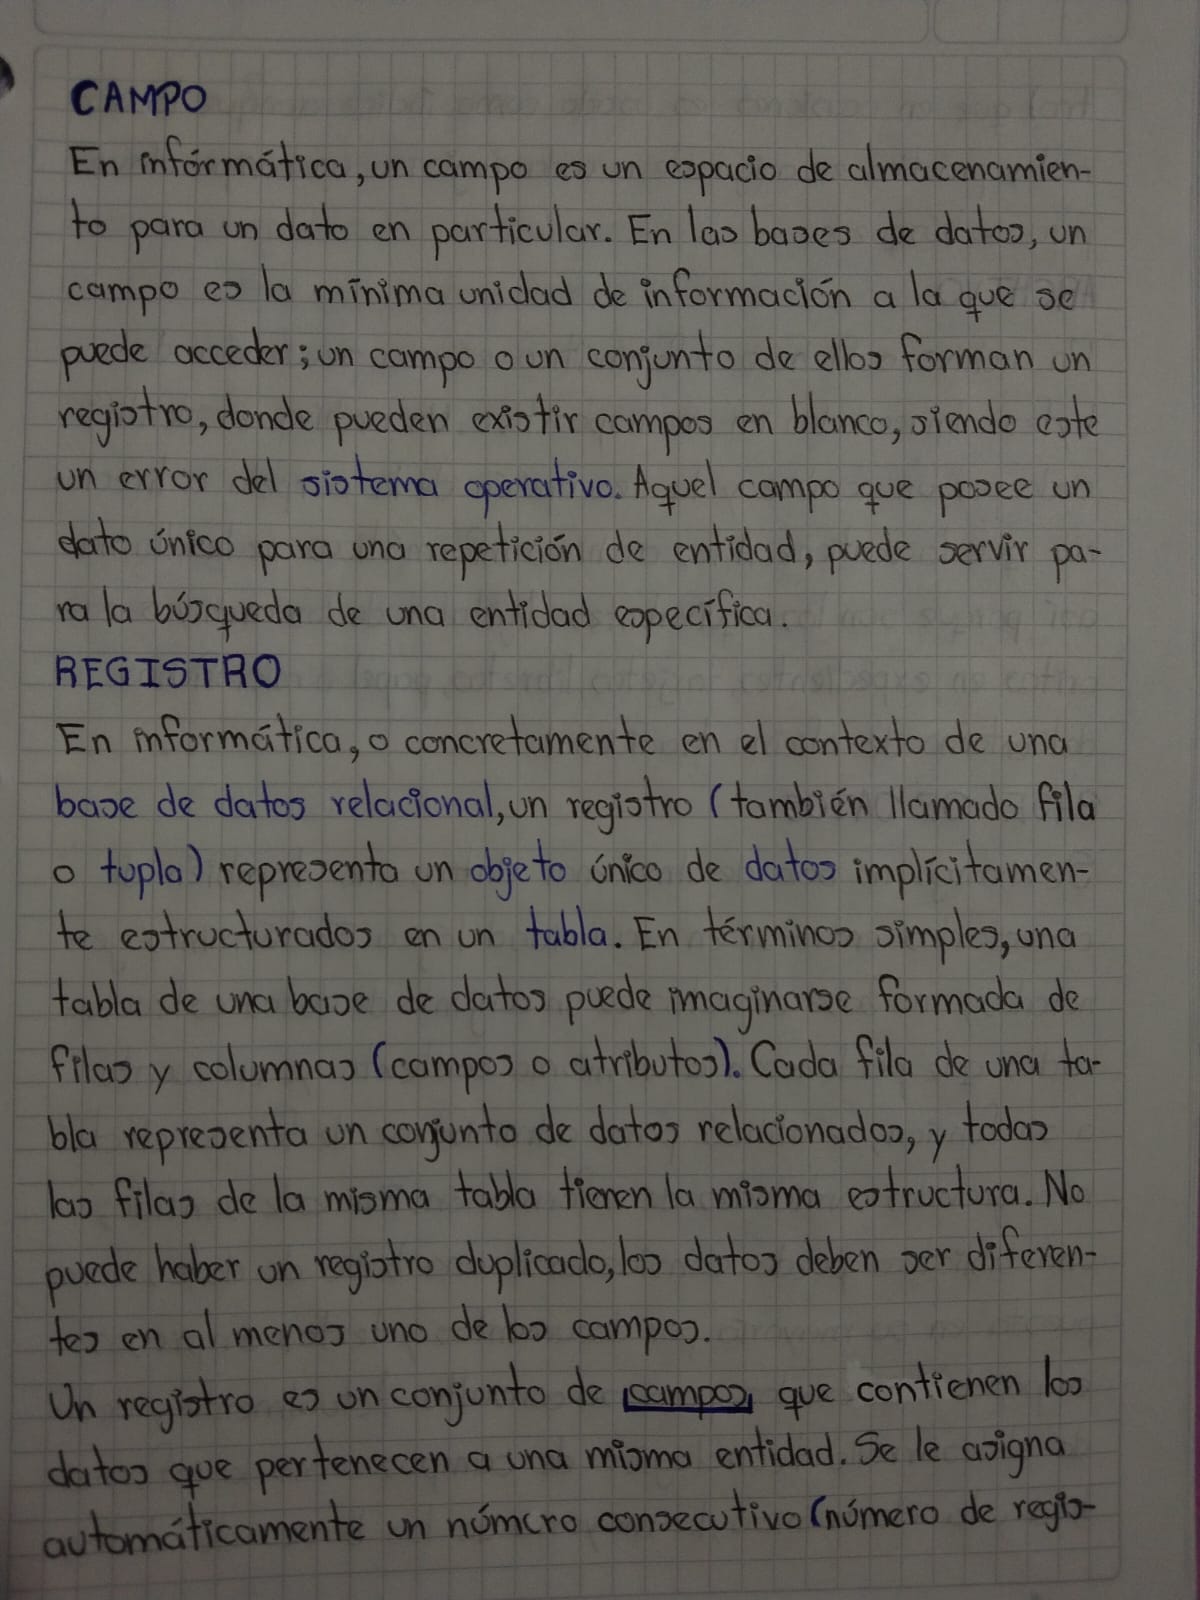 CAMPO
En informática, un campo es un espacio de almacenamien-
to para un dato en particular. En las bases de datos, un
campo es la mínima unidad de información a la que se
puede acceder; un campo o un conjunto de ellos forman un
registro, donde pueden existir campos en blanco, siendo este
un error del sistema operativo. Aquel campo que posee un
dato único para una repetición de entidad, puede servir pa-
ra la búsqueda de una entidad específica.
REGISTRO
En informática, o concretamente en el contexto de una
base de datos relacional, un registro (también llamado fila
o tupla) representa un objeto único de datos implícitamen-
te estructurados en un tabla. En términos simples, una
tabla de una base de datos puede imaginarse formada de
filas y columnas (campos o atributos). Cada fila de una ta-
bla representa un conjunto de datos relacionados, y todas
las filas de la misma tabla tienen la misma estructura. No
puede haber un registro duplicado, los datos deben ser diferen-
tes en al menos uno de los campos.
Un registro es un conjunto de campos que contienen los
datos que pertenecen a una misma entidad. Se le asigna
automáticamente un número consecutivo (número de regis-